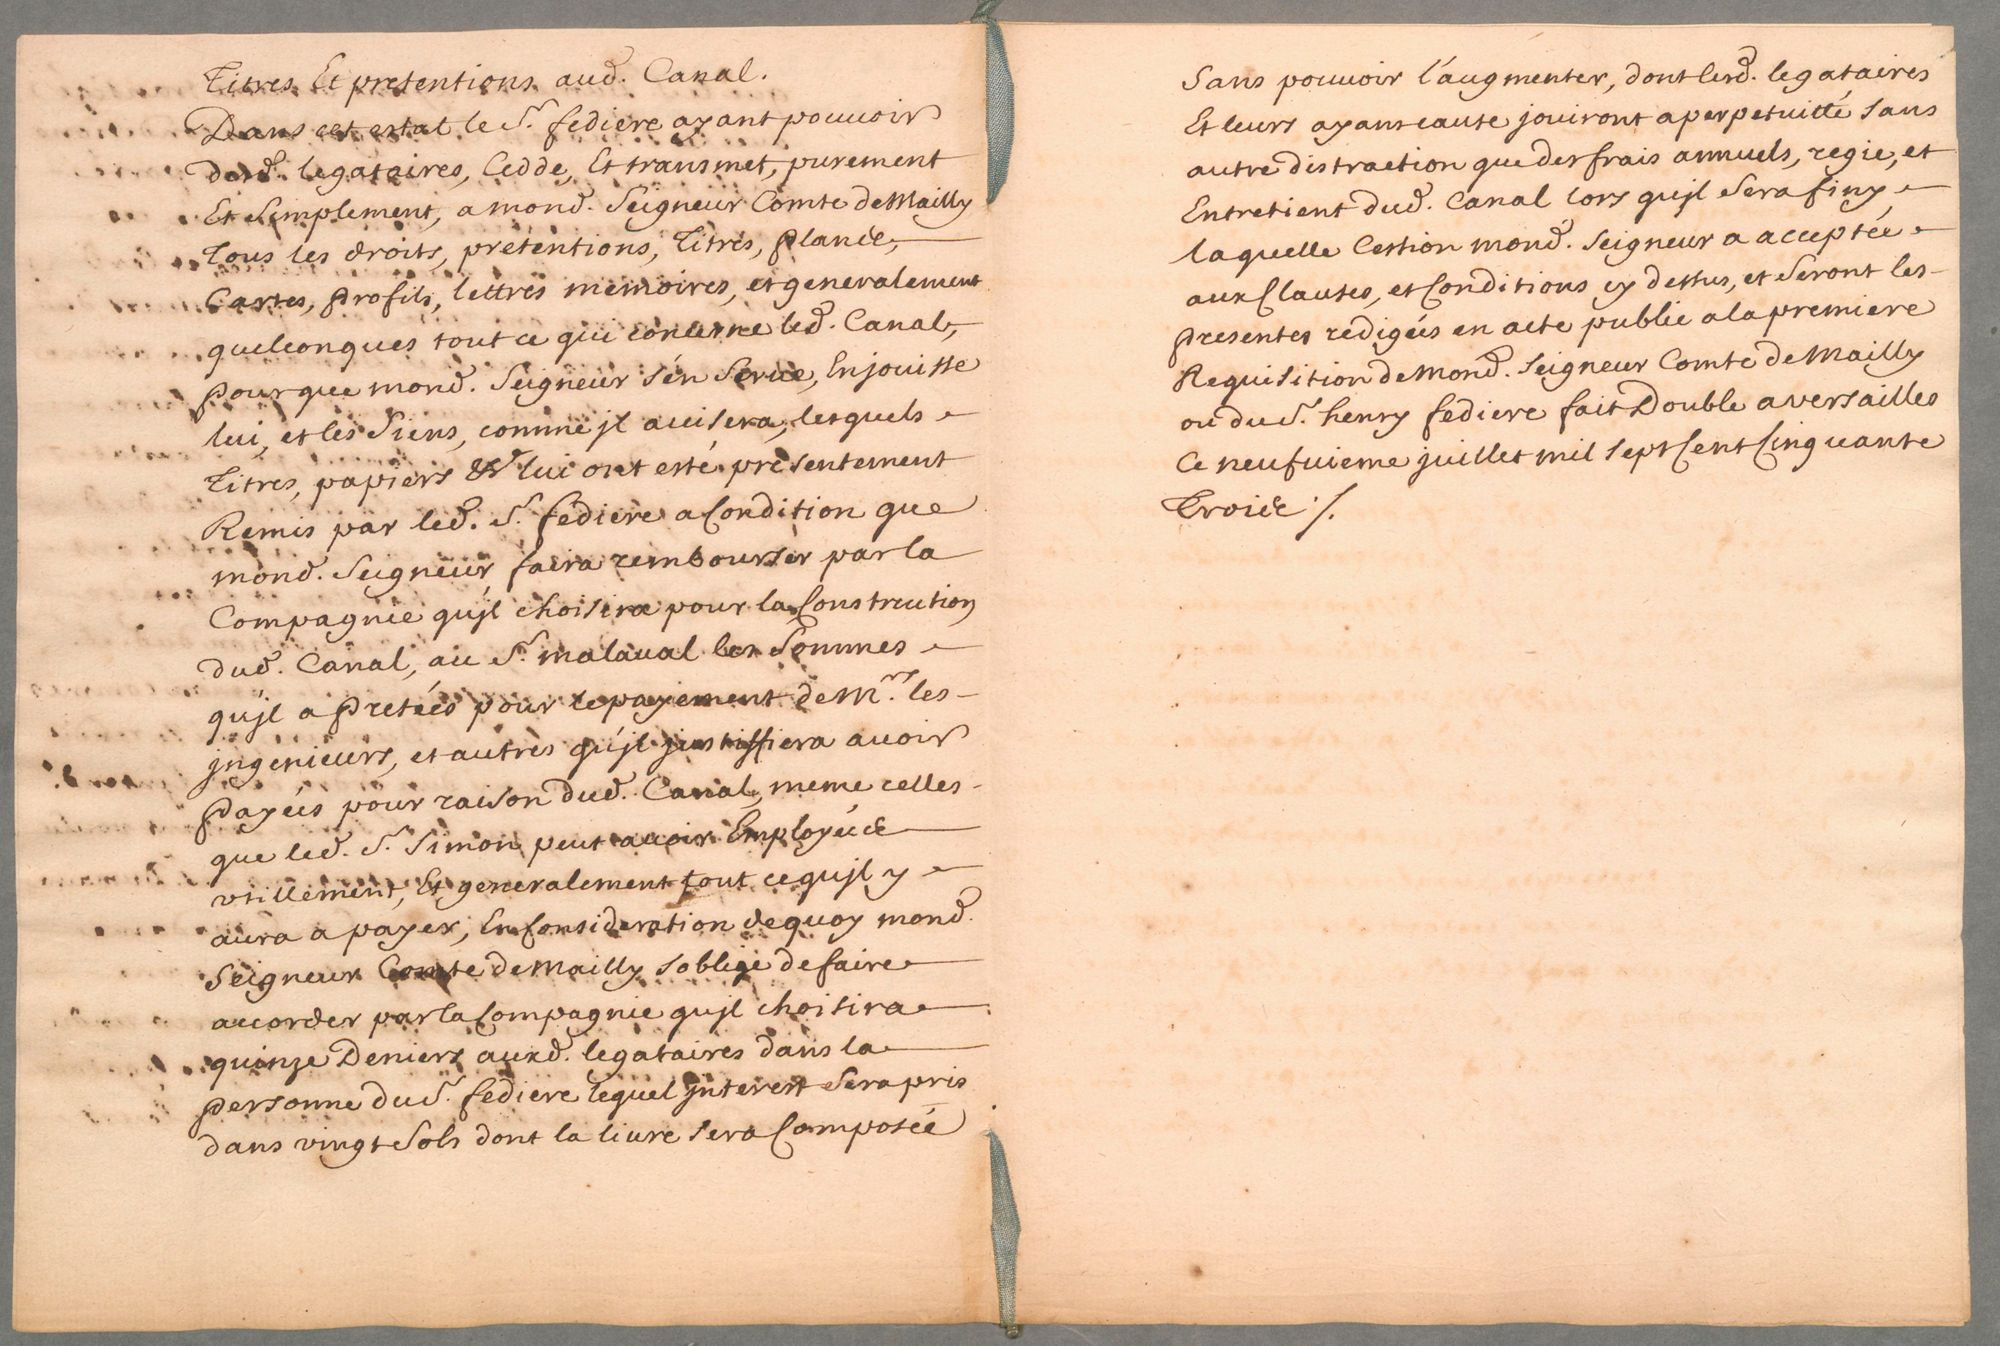 titres Et pretentions aud. Canal.
Dans cet estat le Sr. fediere ayant pouvoir
desd. legataires, Cedde, Et transmet, purement
Et Simplement, a mond. Seigneur Comte de Mailly
tous les droits, prétentions, titres, plans,
Cartes, profils, lettres memoires, et generalement
quelconques tout ce qui concerne led. Canal,
pour que mond. Seigneur s'én Serve, En jouisse
lui, et les Siens, comme jl avisera, lesquels
titres, papiers &c. lui ont esté présentement
Remis par led. Sr. fediere a Condition que
mond. Seigneur faira rembourser par la
Compagnie qu'jl choisira pour la Construction
dud. Canal, au Sr. malaval les Sommes
qu'jl a pretées pour le payement de Mrs. les
jngenieurs, et autres qu'jl justiffiera avoir
payées pour raison dud. Canal, meme celles
que led. Sr. Simon peut avoir Employées
utillement, Et generalement tout ce qu'jl y
aura a payer, En Consideration de quoy mond.
Seigneur Comte de Mailly s'oblige de faire
accorder par la Compagnie qu'jl choisira
quinze Deniers auxd. legataires dans la
personne dud. Sr. fediere lequel jnterest Sera pris
dans vingt Sols dont la livre sera Composée
Sans pouvoir l'augmenter, dont lesd. legataires
Et leurs ayans cause jouiront a perpetuitté sans
autre distraction que des frais annuels, regie, et
Entretient dud. Canal lors qu'jl Sera finy
laquelle Cession mond. Seigneur a acceptée
aux Clauses, et Conditions cy dessus, et Seront les
presentes redigées en acte public a la premiere
Requisition de Mond. Seigneur Comte de Mailly
ou du Sr. henry fediere fait Double a versailles
Ce neufvieme juillet mil sept Cent Cinquante
Trois ./.